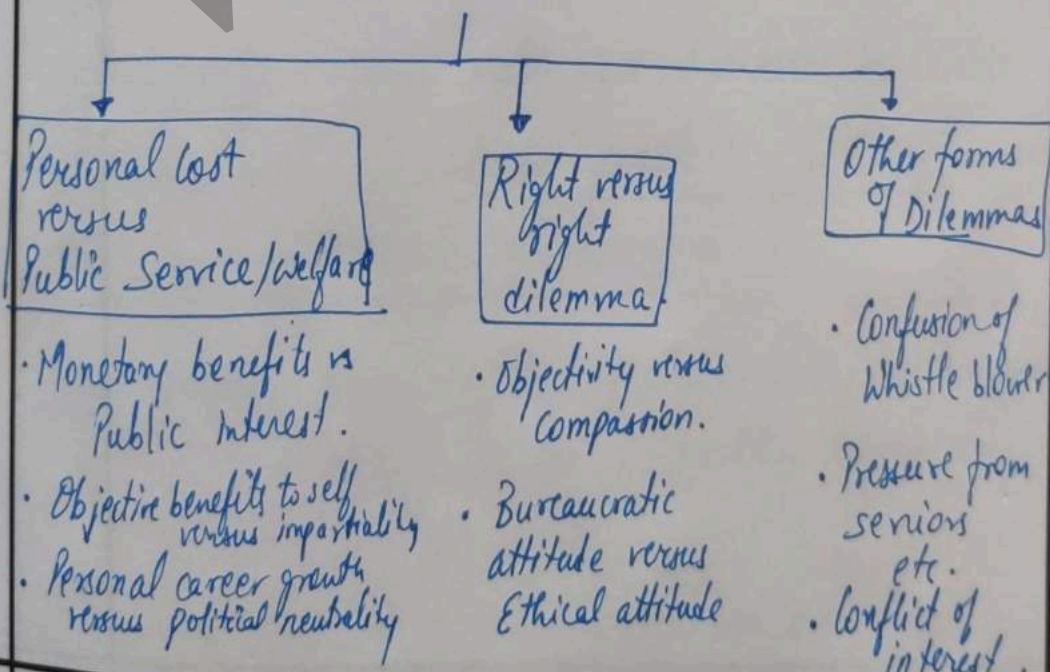 Personal Cost
versus
Public Service/welfare
• Monetary benefits vs
Public interest.
• Objective benefits to self
versus impartiality
• Personal career growth
versus political neutrality
Right versus
right
dilemma.
• Objectivity versus
compassion.
• Bureaucratic
attitude versus
Ethical attitude
Other forms
of Dilemmas
• Confusion of
Whistle blower
• Pressure from
seniors
etc.
• Conflict of
interest.